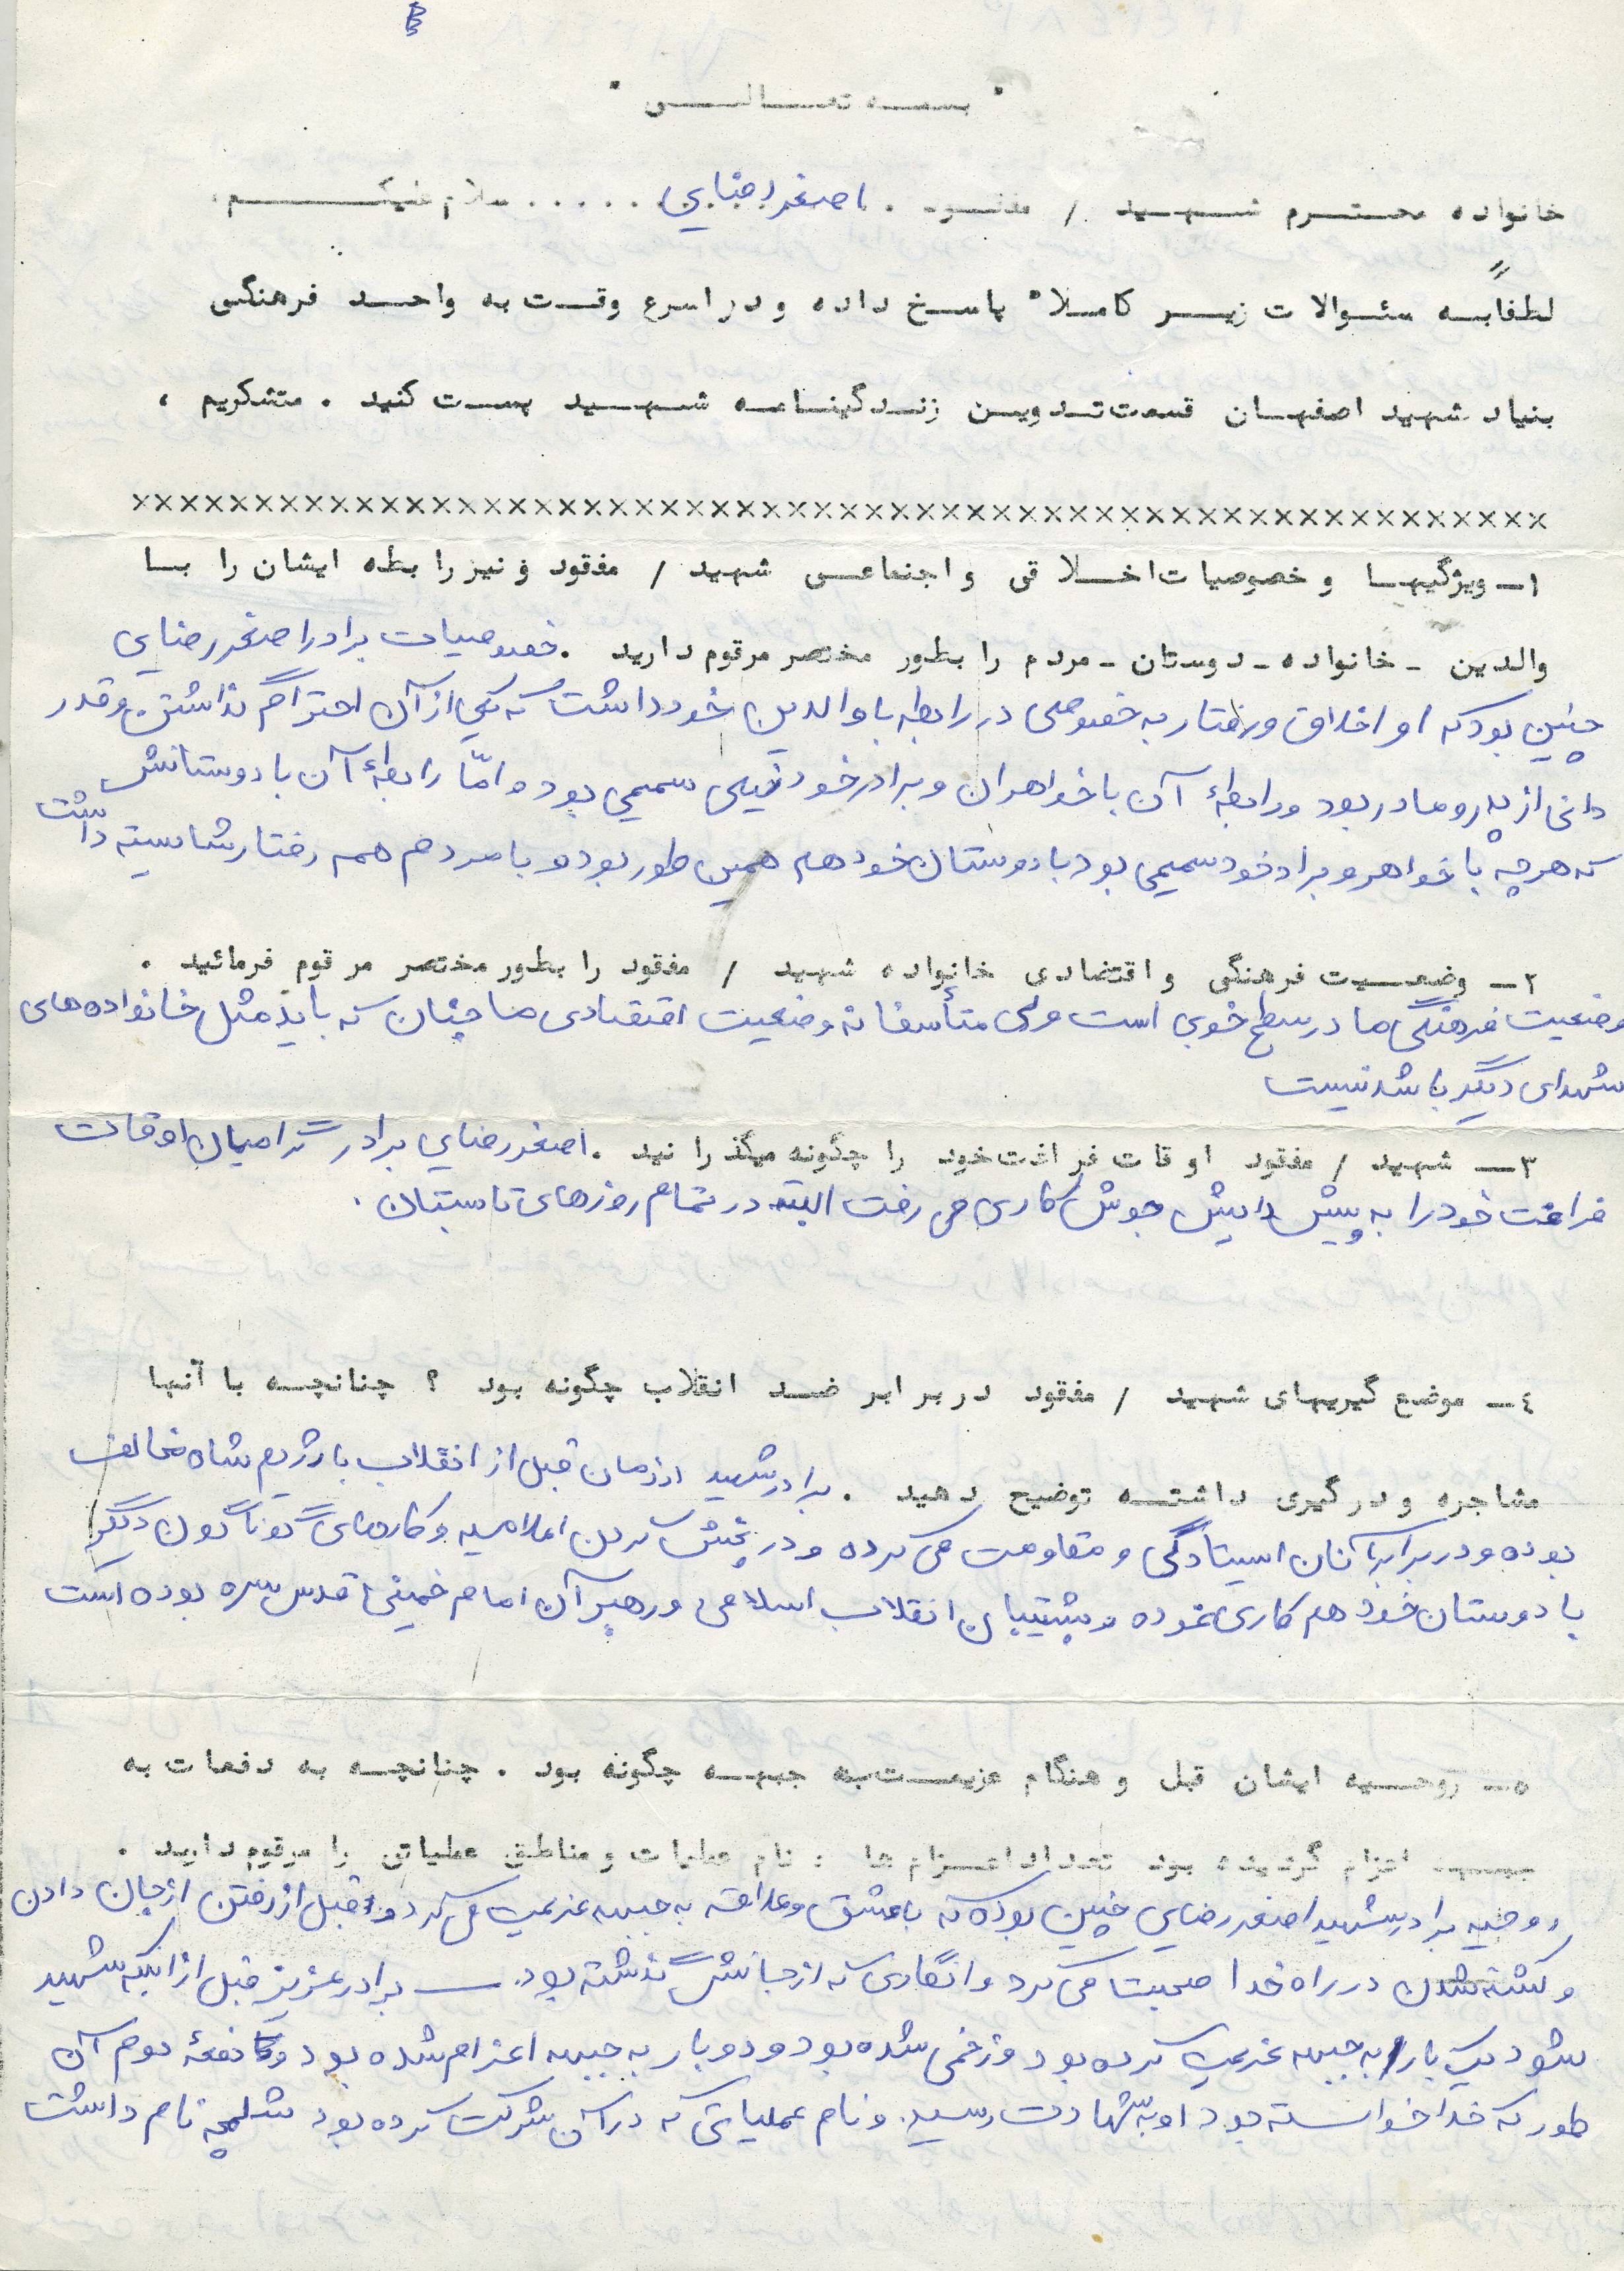 " بسمه تعالی "
خانواده محترم شهید / مفقود . اصغر رضایی . . . . . سلام علیکم ،
لطفاً به سئوالات زیر کاملا" پاسخ داده و در اسرع وقت به واحد فرهنگی
بنیاد شهید اصفهان قسمت تدوین زندگینامه شهید پست کنید . متشکریم ،
xxxxxxxxxxxxxxxxxxxxxxxxxxxxxxxxxxxxxxxxxxxxxxxxxxxxxxxx
۱ـ ویژگیها و خصوصیات اخلاقی و اجتماعی شهید / مفقود و نیز رابطه ایشان را با
والدین ـ خانواده ـ دوستان ـ مردم را بطور مختصر مرقوم دارید . خصوصیات برادر اصغر رضایی
چنین بود که او اخلاق و رفتار به خصوصی در رابطه با والدین خود داشت که یکی از آن احترام گذاشتن و قدر
دانی از پدر و مادر بود و رابطهٔ آن با خواهران و برادر خود خیلی سمیمی بود و امّا رابطهٔ آن با دوستانش
که هر چه با خواهر و براد خود سمیمی بود با دوستان خود هم همین طور بود و با مردم همه رفتار شایسته داشت
۲ـ وضعیت فرهنگی و اقتصادی خانواده شهید / مفقود را بطور مختصر مرقوم فرمائید .
وضعیت فرهنگی ما در سطح خوبی است ولی متأسفانه وضعیت اقتصادی ما چنان که باید مثل خانواده های
شهدای دیگر باشد نیست
۳ـ شهید / مفقود اوقات فراغت خود را چگونه میگذرانید . اصغر رضایی برادر گرامیمان اوقات
فراغت خود را به پیش جوش کاری می رفت البته در تمام روزهای تابستان .
٤ـ موضع گیریهای شهید / مفقود در برابر ضد انقلاب چگونه بود ؟ چنانچه با آنها
مشاجره و درگیری داشته توضیح دهید . برادر شهید از زمان قبل از انقلاب با رژیم شاه مخالف
بوده و در برابر آنان ایستادگی و مقاومت می کرده و در پخش کردن اعلامیه و کارهای گوناگون دیگر
با دوستان خود هم کاری نموده و پشتیبان انقلاب اسلامی و رهبر آن امام خمینی قدس سره بوده است
۵ـ روحیه ایشان قبل و هنگام عزیمت به جبهه چگونه بود . چنانچه به دفعات به
جبهه اعزام گردیده بود تعداد اعزام ها ؛ نام عملیات و مناطق عملیاتی را مرقوم دارید .
روحیه برادر شهید اصغر رضایی چنین بوده که با عشق و علاقه به جبهه عزیمت می کرد و قبل از رفتن از جان دادن
و کشته شدن در راه خدا صحبت می کرد و انگاری که از جانش گذشته بود. ـ برادر عزیز قبل از اینکه شهید
شود یک بار به جبهه عزیمت کرده بود و زخمی شده بود و دو بار به جبهه اعزام شده بود و دفعهٔ دوم آن
طور که خدا خواسته بود او به شهادت رسید. و نام عملیاتی که در آن شرکت کرده بود شلمچه نام داشت